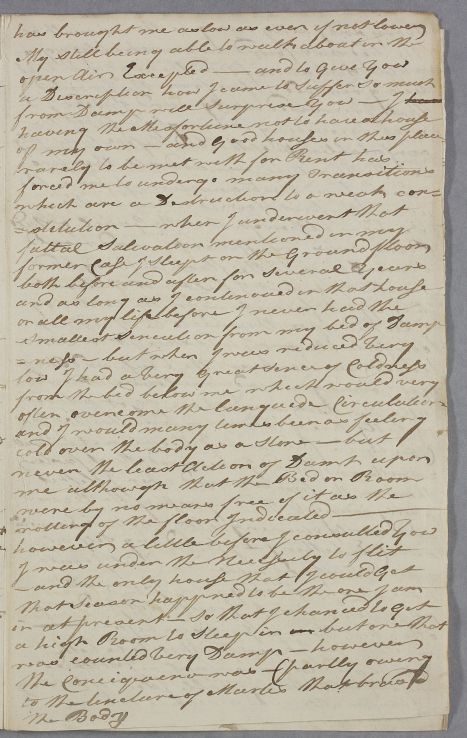 has brought me as low as ever if not lower
My still being able to walk about in the
open Air Excepted — and to Give You
a Description how I came to Suffer So much
from Damp will Surprise You — I
having the Misfortune not to have a house
of my own — and Good houses in this place
rarely to be met with for Rent has
forced me to undergo many Transitions
which are a Destruction to a weak con-
-stitution — when I underwent that
fattal Salivation mentioned in my
former Case I Slept on the Ground floor
both before and after for Several Years
and as long as I continowed in that house
or all my life before I never had the
Smallest Sensation from my bed of Damp
=ness — but when I was reduced very
low I had a very Great Sence of Coldness
from the bed below me which would very
often overcome the languede Circulation
and I would many times been as feeling
cold over the body as a Stone — but
never the least Action of Damp upon
me although that the Bed or Room
were by no means free of it as the
rotting of the floor Indicated —
however a little before I consulted You
I was under the Necessity to flit
— and the only house that I could Get
that Season happned to be the one I am
in at present — So that I chanced to Get
a high Room to Sleep in but one that
was counted very Damp — however
the Consiquence was — (partly owing
to the tincture of Martis that braced
the Body